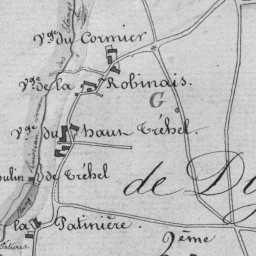 Vge du Cormier
Vge de la Robinais.
G
Vge du haut Tréhel.
oulin de Tréhel
de Do
la Patinière.
2ème